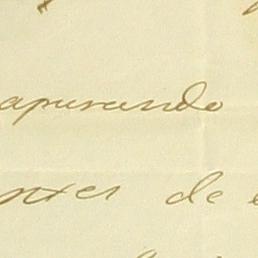 apurando
ntes de